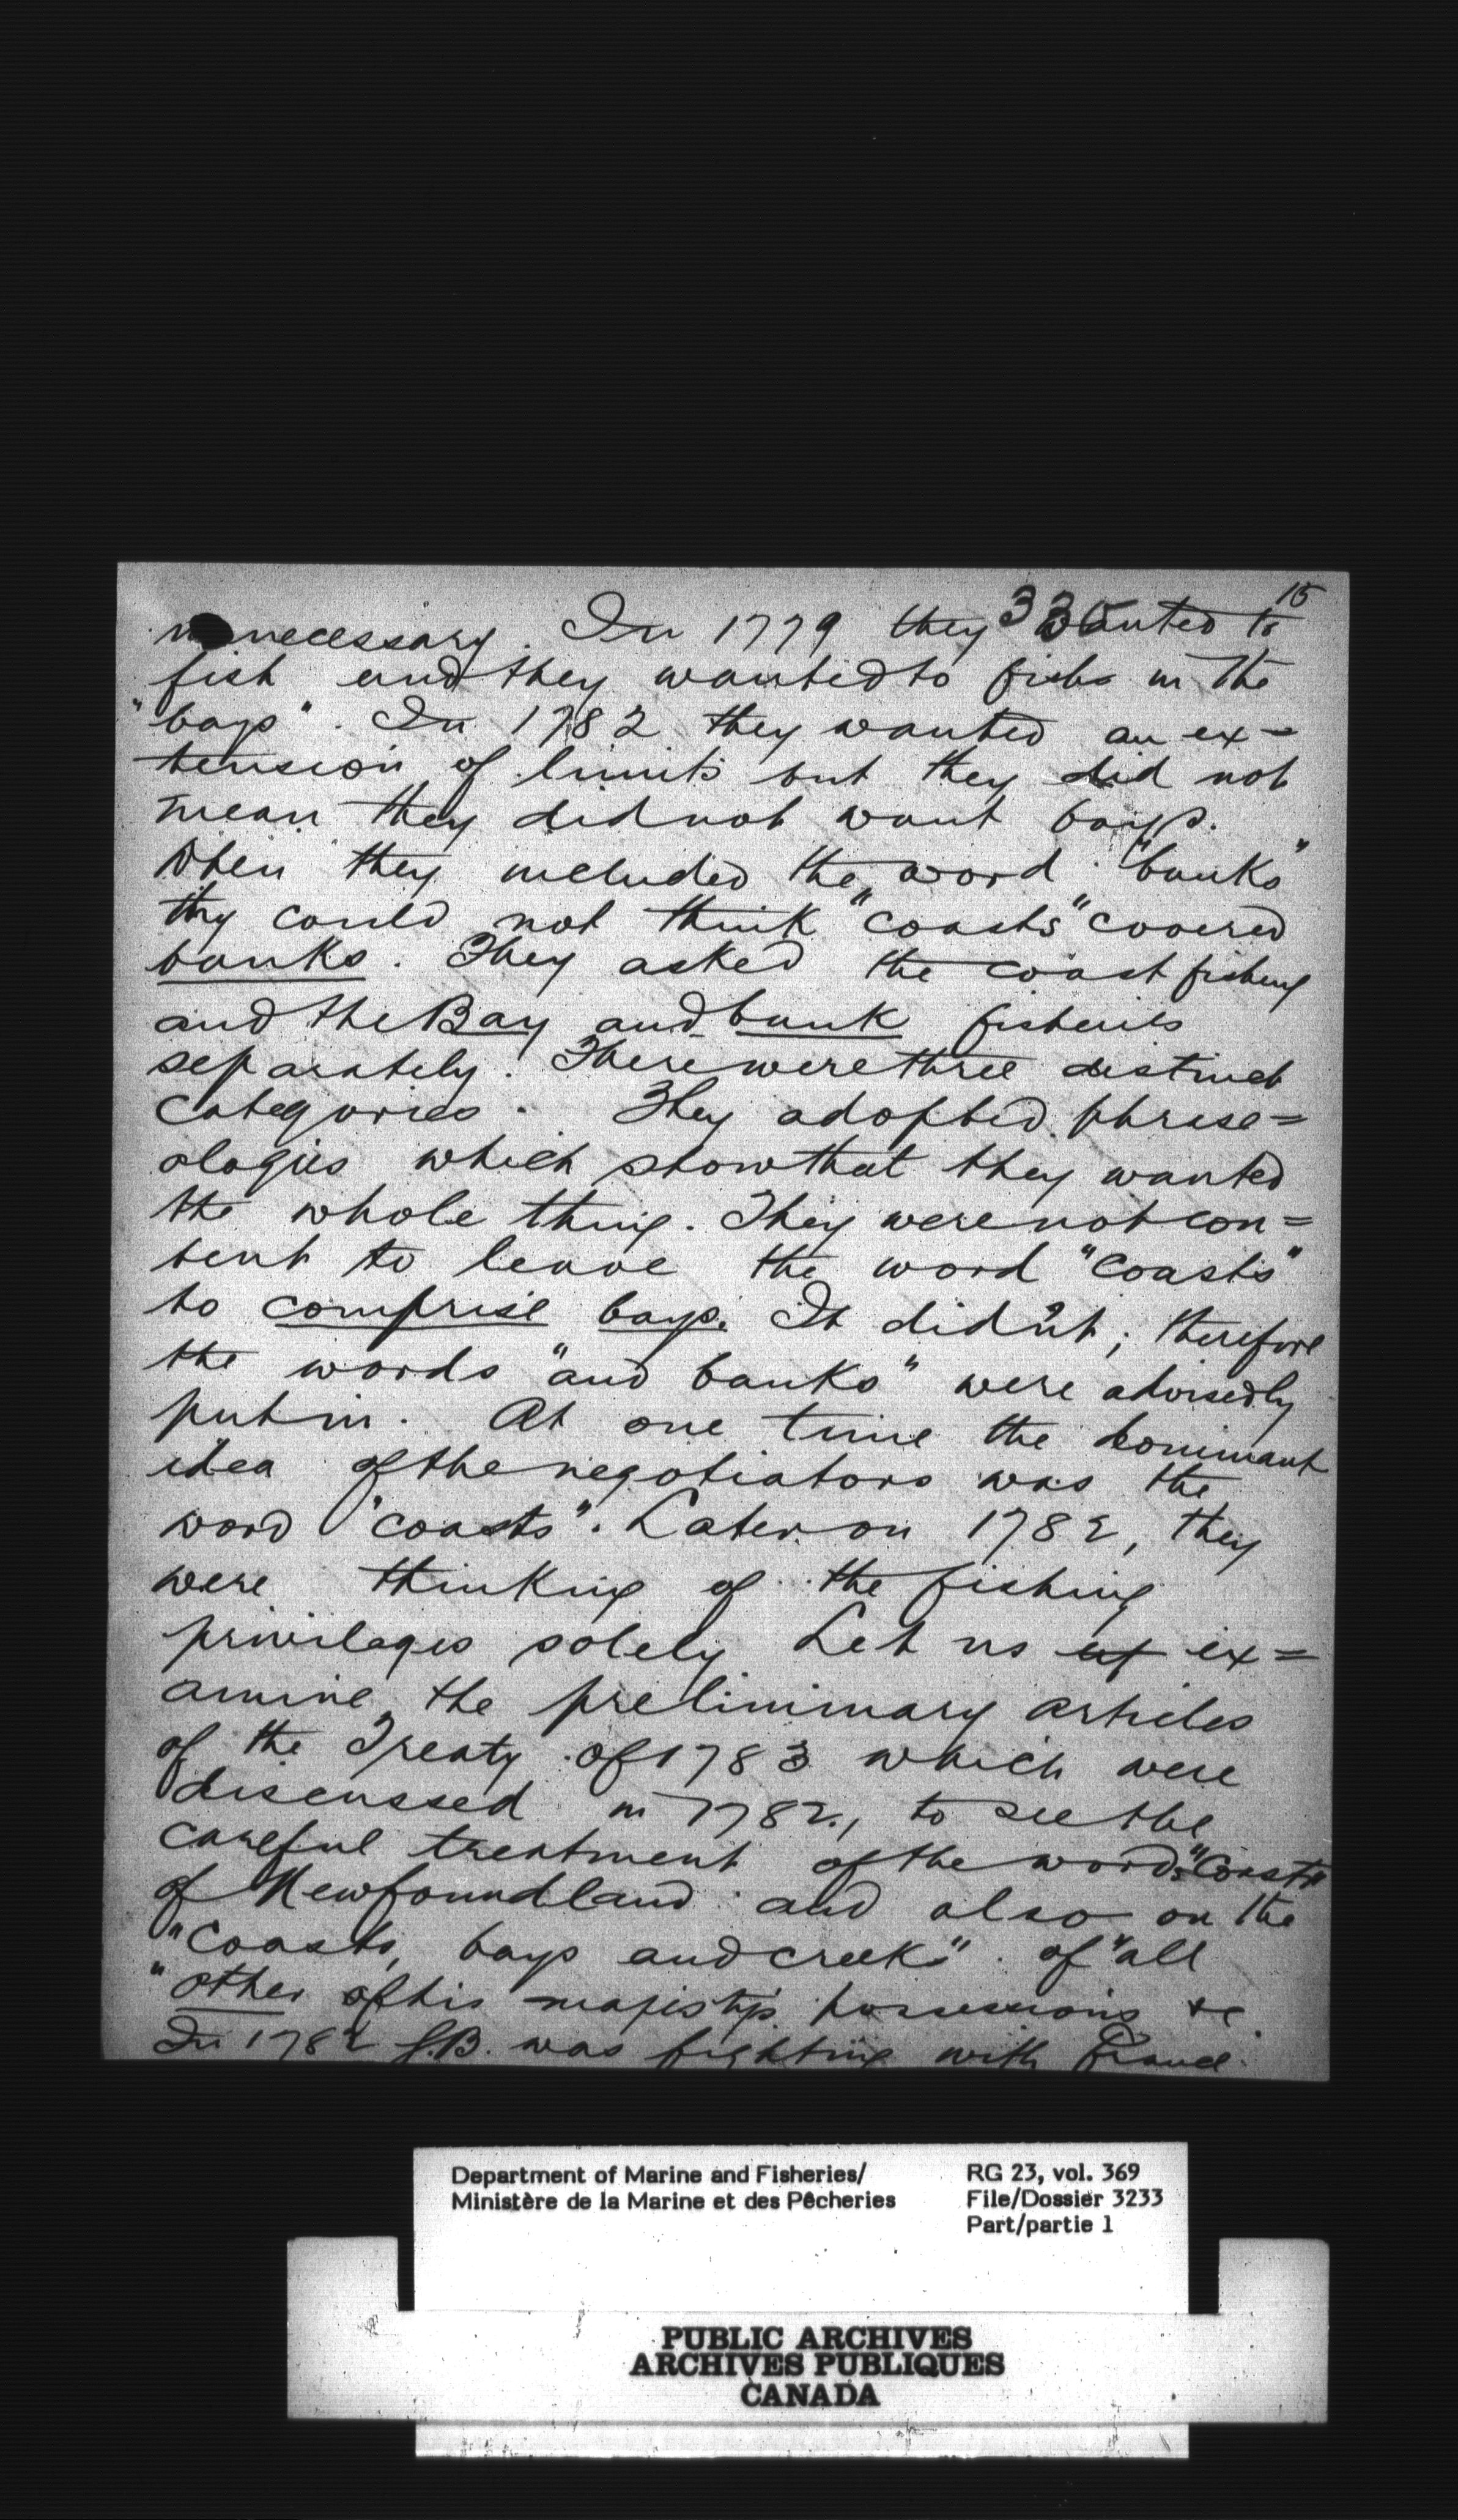 15
335
unnecessary. In 1779 they wanted to
fish and they wanted to fish in the
"bays". In 1782 they wanted an ex=
tension of limits but they did not
mean they did not want bays.
When they included the word "banks"
they could not think "coasts" covered
banks. They asked the coast fishery
and the Bay and bank fisheries
separately. There were three distinct
categories. They adopted phrase=
ologies which show that they wanted
the whole thing. They were not con=
tent to leave the word "coasts"
to comprise bays. It didn't; therefore
the words "and banks" were advisedly
put in. At one time the dominant
idea of the negotiators was the
word "coasts". Later on 1782, they
were thinking of the fishing
privileges solely Let us ex=
amine the preliminary articles
of the Treaty of 1783 which were
discussed in 1782, to see the
careful treatment of the words "Coasts"
of Newfoundland and also on the
"Coasts, bays and creeks" of "all
"other of his majesty's possessions &c.
In 1782 G.B. was fighting with France.
Department of Marine and Fisheries/
Ministère de la Marine et des Pêcheries
RG 23, vol. 369
File/Dossier 3233
Part/partie 1
PUBLIC ARCHIVES
ARCHIVES PUBLIQUES
CANADA